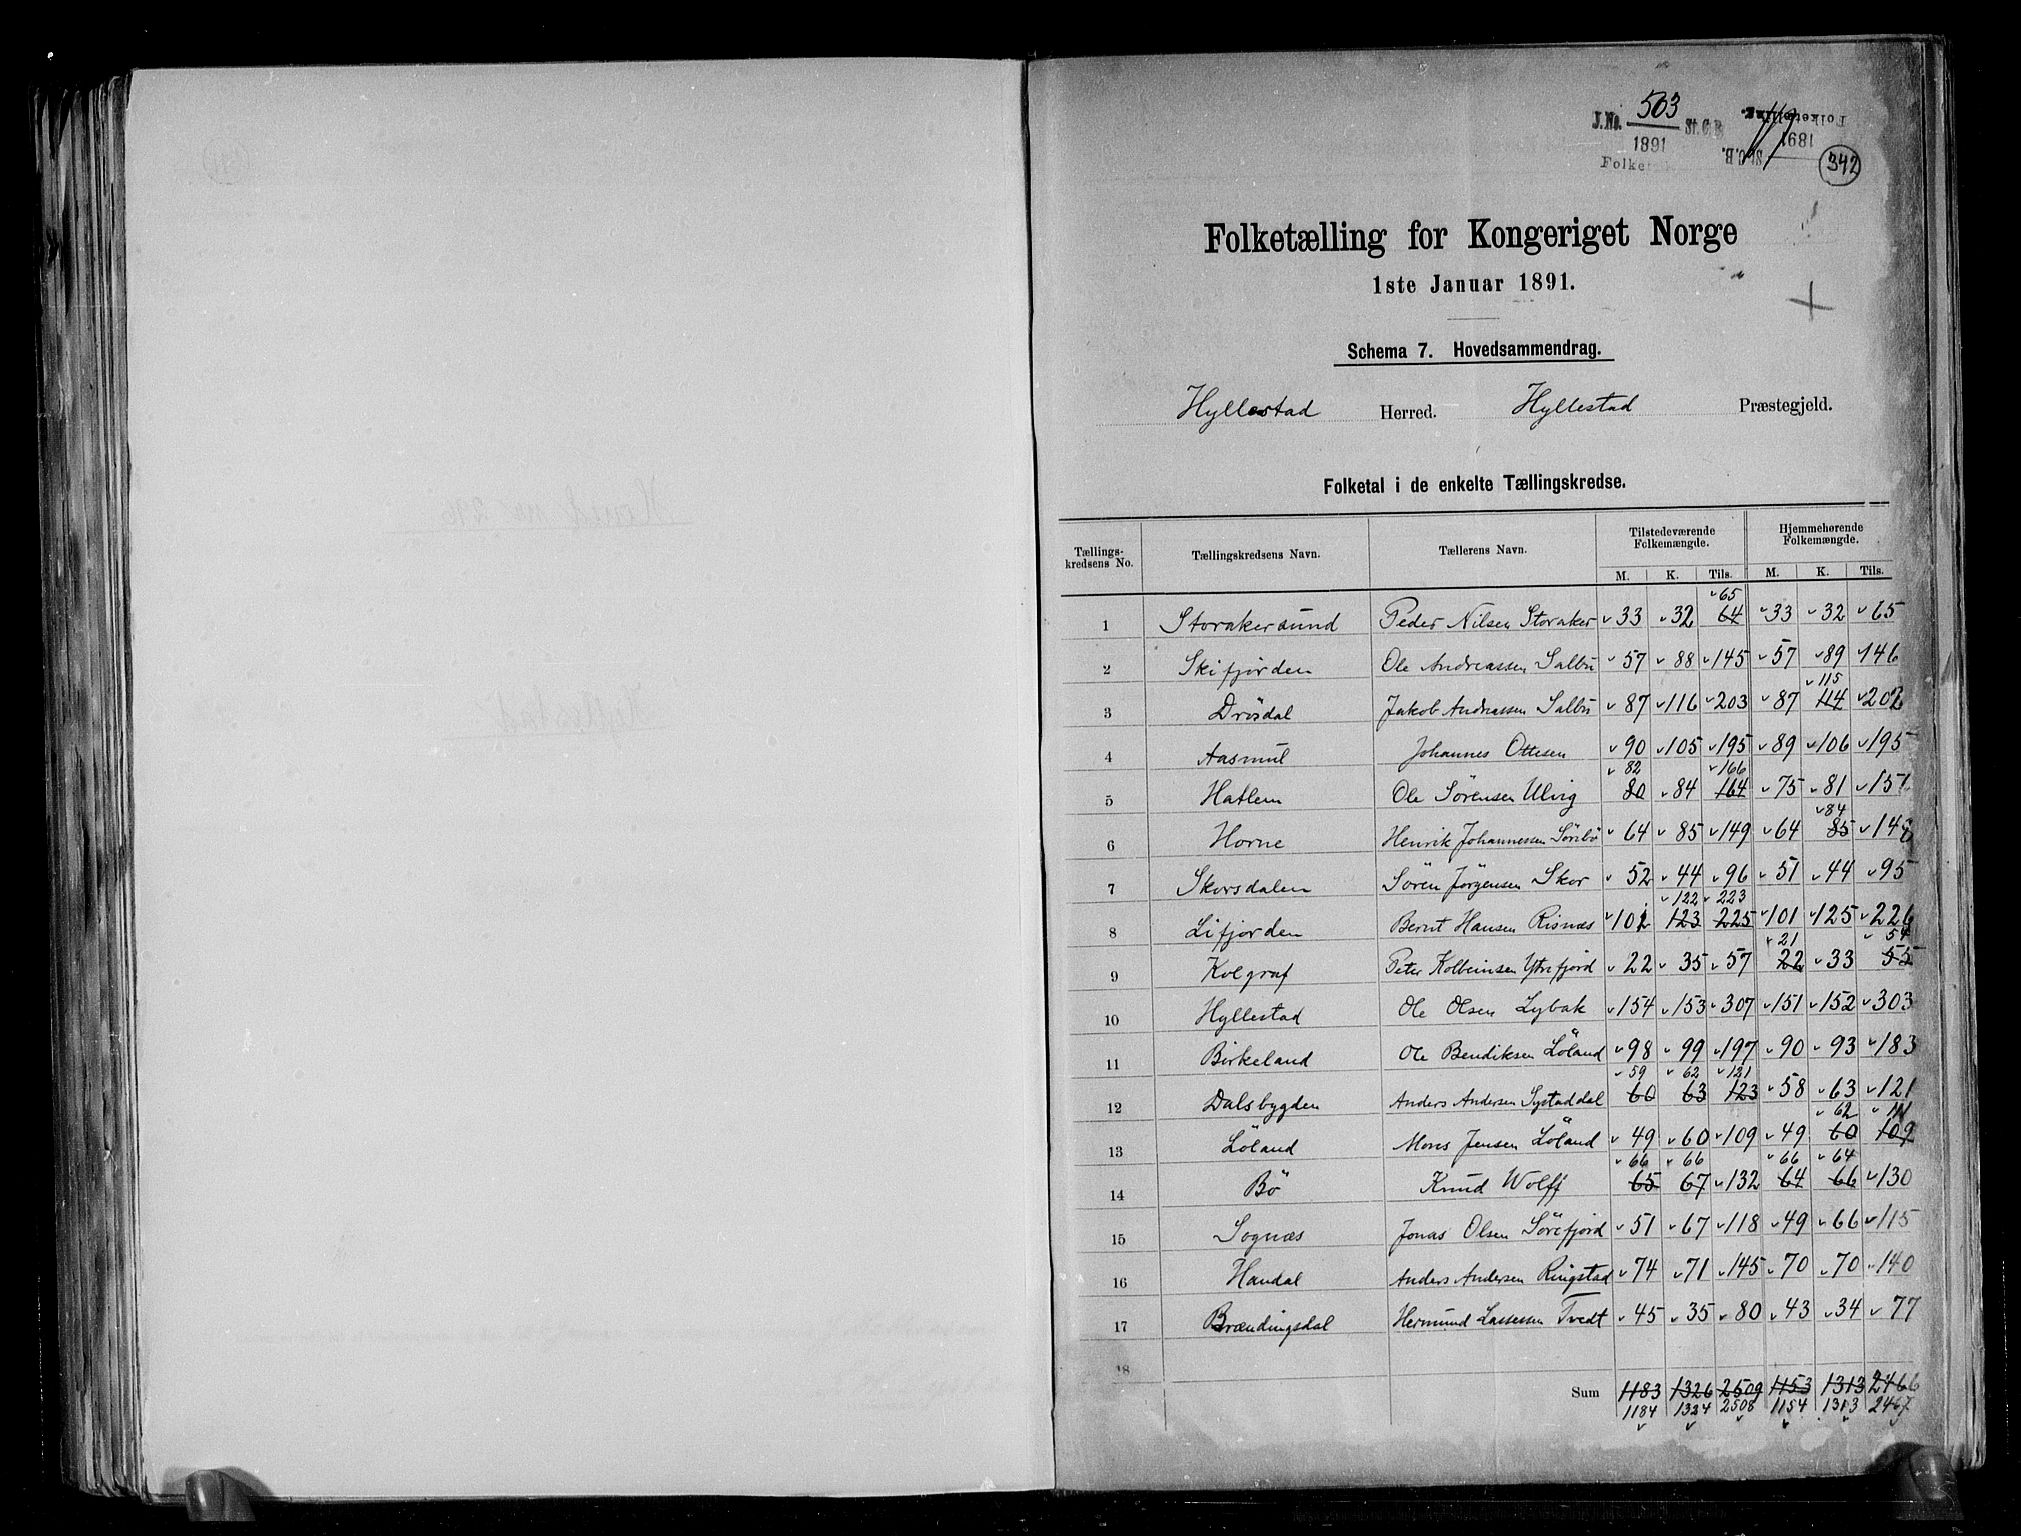 J.No. 503 St.C.B.
1891
Folketælling.
1891
St.C.B.
342
Folketælling for Kongeriget Norge
1ste Januar 1891.
Schema 7. Hovedsammendrag.
Hyllestad Herred. Hyllestad Præstegjeld.
Folketal i de enkelte Tællingskredse.
Tællings-kredsens No. Tællingskredsens Navn. Tællerens Navn. Tilstedeværende Folkemængde. Hjemmehørende Folkemængde.
M. K. Tils. M. K. Tils.
65
1 Storakersund Peder Nilsen Storaker 33 32 64 33 32 65
2 Skifjorden Ole Andreassen Salbu 57 88 145 57 89 146
115
3 Drösdal Jakob Andreassen Salbu 87 116 203 87 114 202
4 Aasmul Johannes Ottesen 90 105 195 89 106 195
82 166
5 Hatlem Ole Sørensen Ulvig 80 84 164 75 81 157
84
6 Horne Henrik Johannessen Sörebö 64 85 149 64 85 148
7 Skorsdalen Sören Jørgensen Skor 52 44 96 51 44 95
122 223
8 Lifjorden Bernt Hansen Risnæs 101 123 225 101 125 226
21 54
9 Kolgraf Peter Kolbeinsen Ytrefjord 22 35 57 22 33 55
10 Hyllestad Ole Olsen Lybak 154 153 307 151 152 303
11 Birkeland Ole Bendiksen Löland 98 99 197 90 93 183
59 62 121
12 Dalsbygden Anders Andersen Systaddal 60 63 123 58 63 121
62 111
13 Löland Mons Jensen Löland 49 60 109 49 60 109
66 66 66 64
14 Bö Knud Wolff 65 67 132 64 66 130
15 Sognæs Jonas Olsen Sörefjord 51 67 118 49 66 115
16 Handal Anders Andersen Ringstad 74 71 145 70 70 140
17 Brændingsdal Hermund Lassesen Tvedt 45 35 80 43 34 77
18
Sum 1183 1326 2509 1153 1313 2466
1184 1324 2508 1154 1313 2467